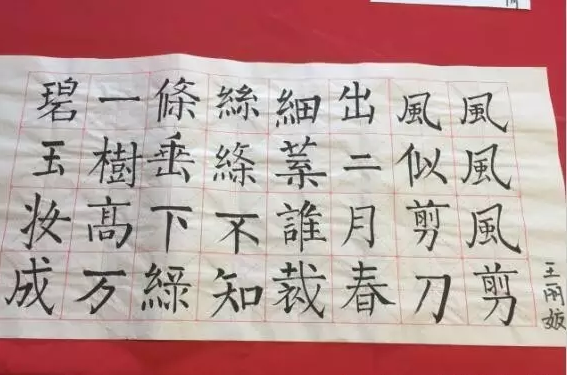 碧玉妆成
一樹髙万
條垂下綠
絲絛不知
細葉誰裁
出二月春
風似剪刀
風風風剪
王丽